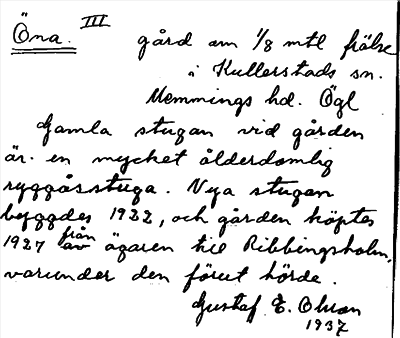 Öna. III gård om 1/8 mtl frälse
i Kullerstads sn.
Memmings hd. Ögl
Gamla stugan vid gården
är en mycket ålderdomlig
ryggåsstuga. Nya stugan
byggdes 1922, och gården köptes
1927 från av ägaren till Ribbingsholm,
varunder den förut hörde.
Gustaf E. Olsson
1937